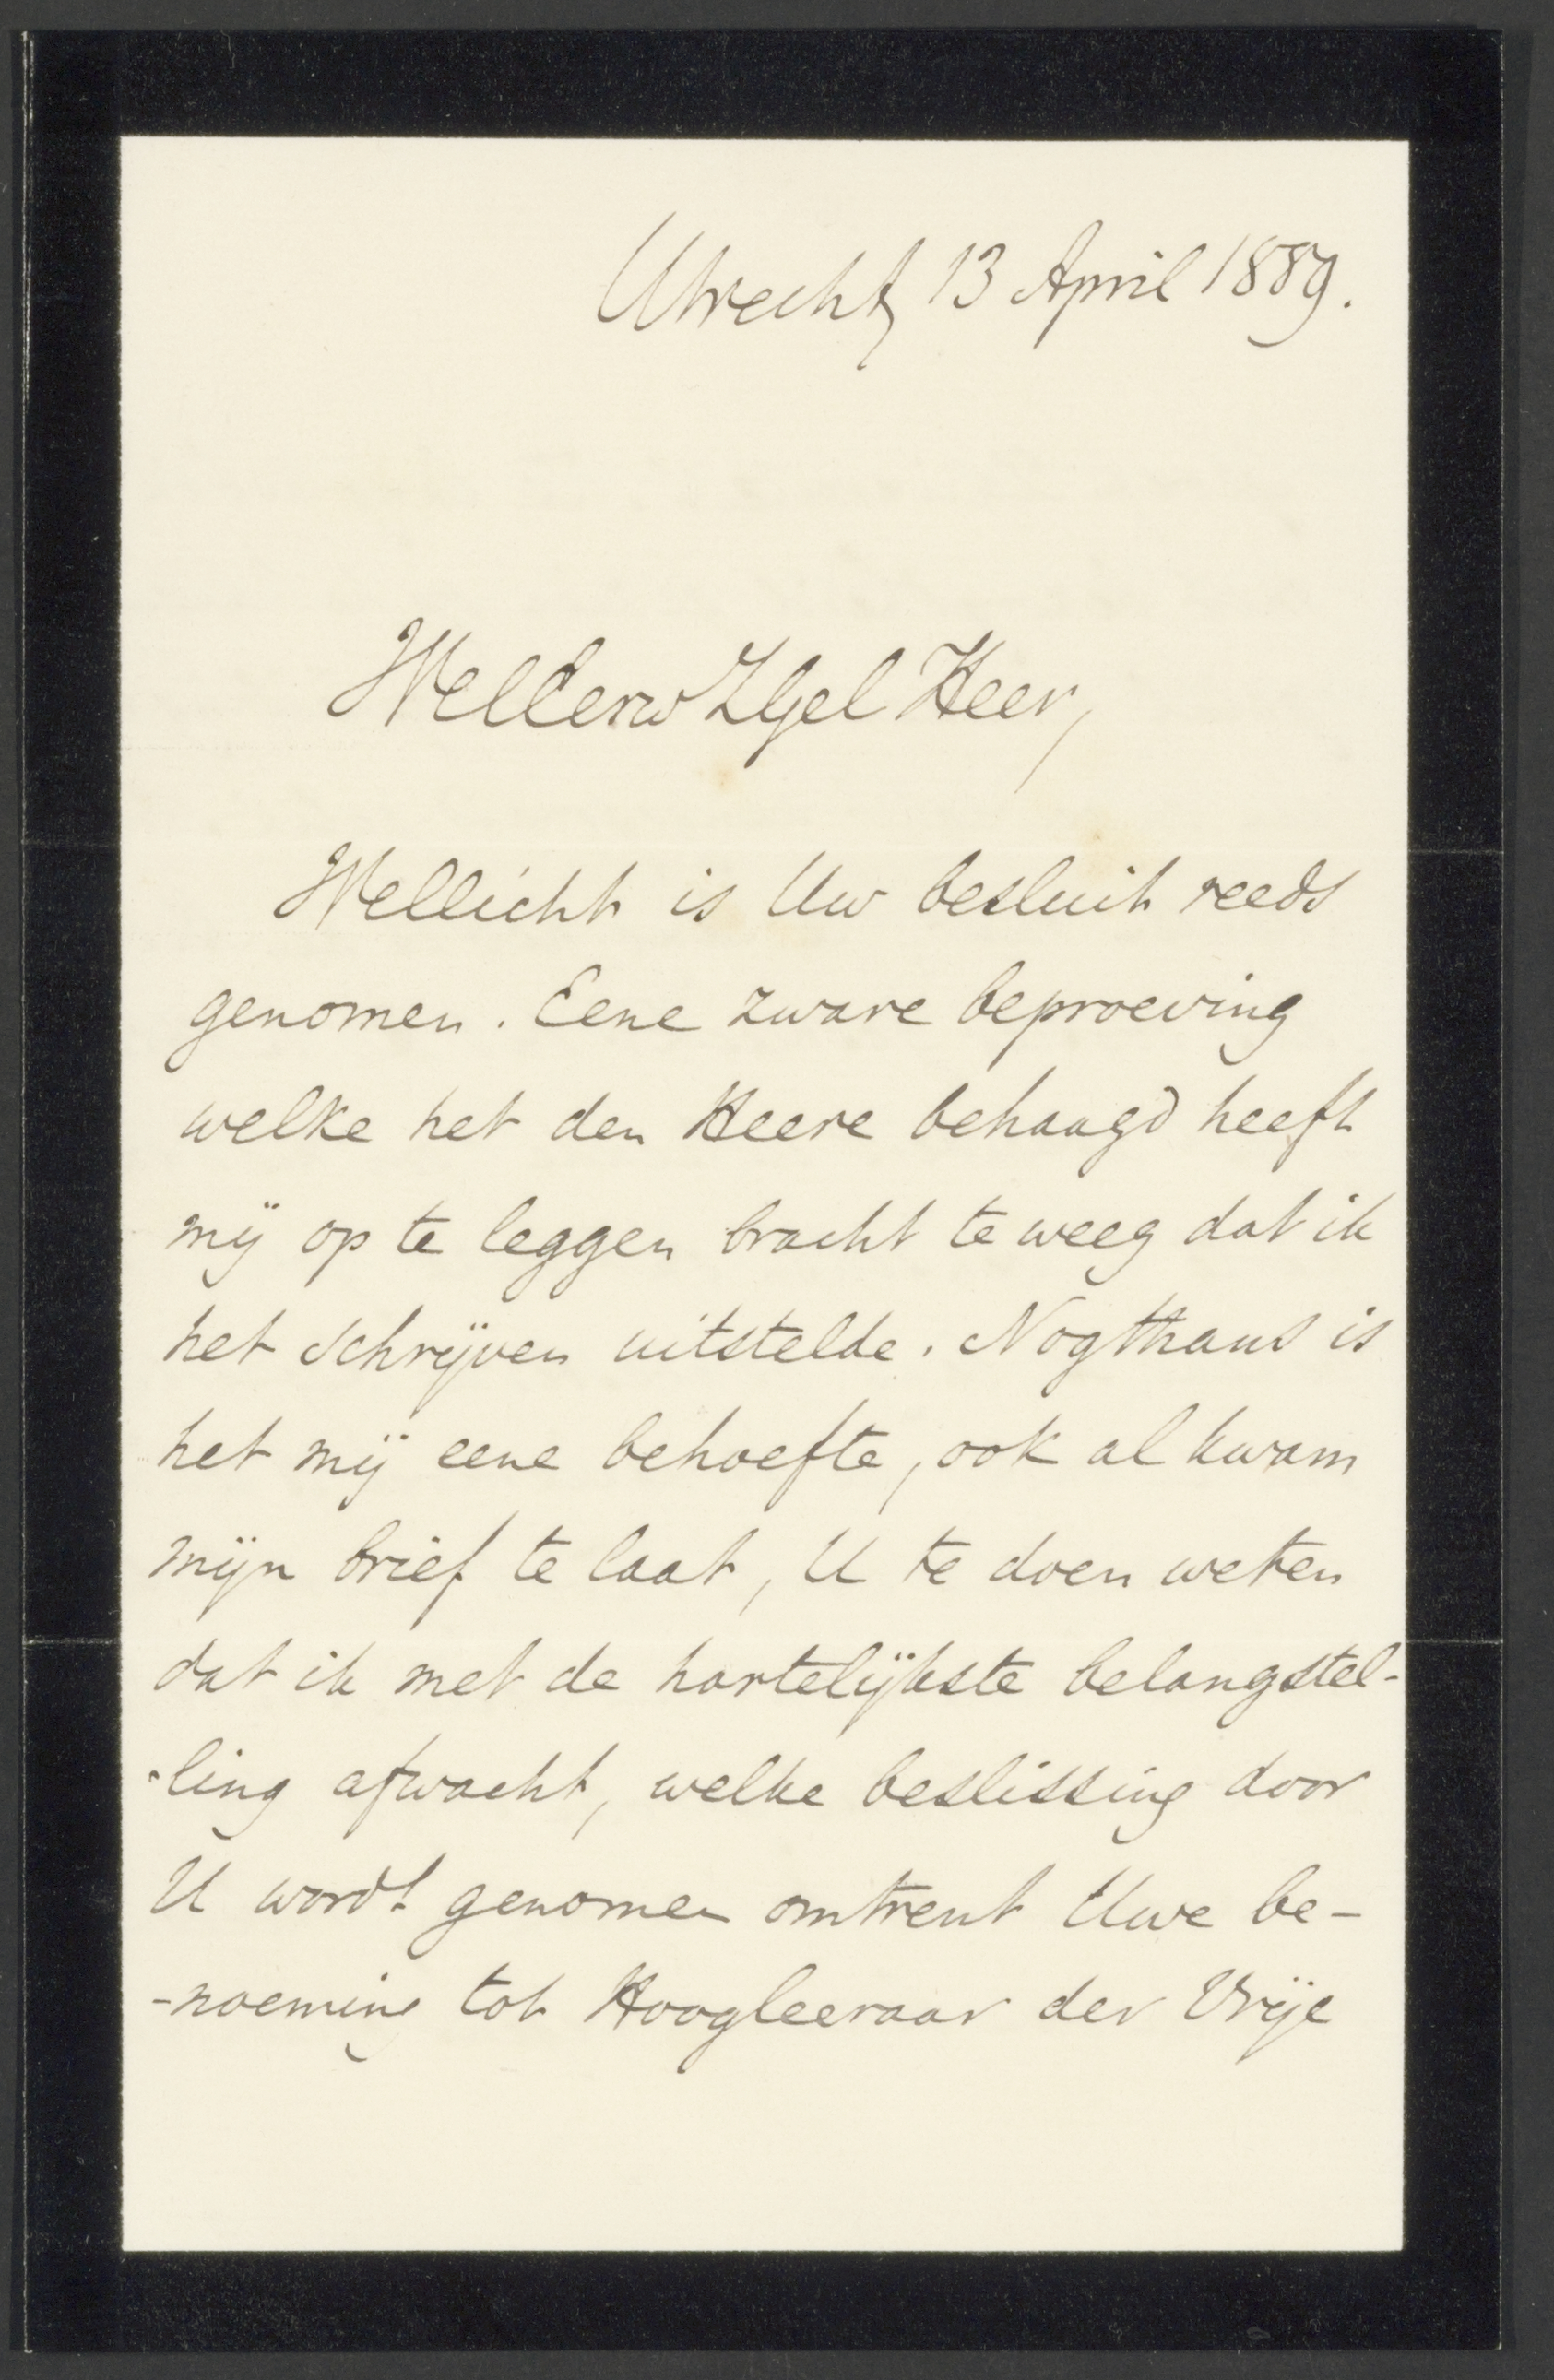 Utrecht, 13 April 1889.
WelEerw ZGel Heer,
Wellicht is Uw besluit reeds
genomen. Eene zware beproeving
welke het den Heere behaagd heeft
mij op te leggen bracht te weeg dat ik
het schrijven uitstelde. Nogthans is
het mij eene behoefte, ook al kwam
mijn brief te laat, U te doen weten
dat ik met de hartelijkste belangstel-
-ling afwacht, welke beslissing door
U wordt genomen omtrent Uwe be-
-noeming tot Hoogleeraar der Vrije